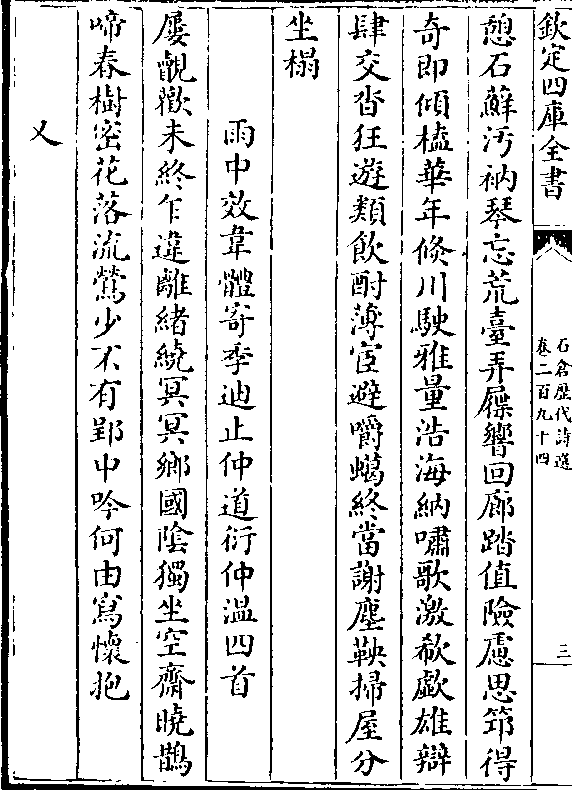 欽定四庫全書
石倉歷代詩選
卷二百九十四
三
憩石蘇汚衲琴忘荒臺弄屧響回廊踏值險慮思笻得
奇即傾榼華年倐川駛雅量浩海納嘯歌激欷歔雄辯
肆交沓狂遊類飲酎薄宦避嚼蠟終當謝塵鞅掃屋分
坐榻
雨中效韋體寄季迪止仲道衍仲温四首
屢覯歡未終乍違離緒繞冥冥鄉國陰獨坐空齋曉鵲
啼春樹密花落流鶯少不有郢中吟何由寫懷抱
又